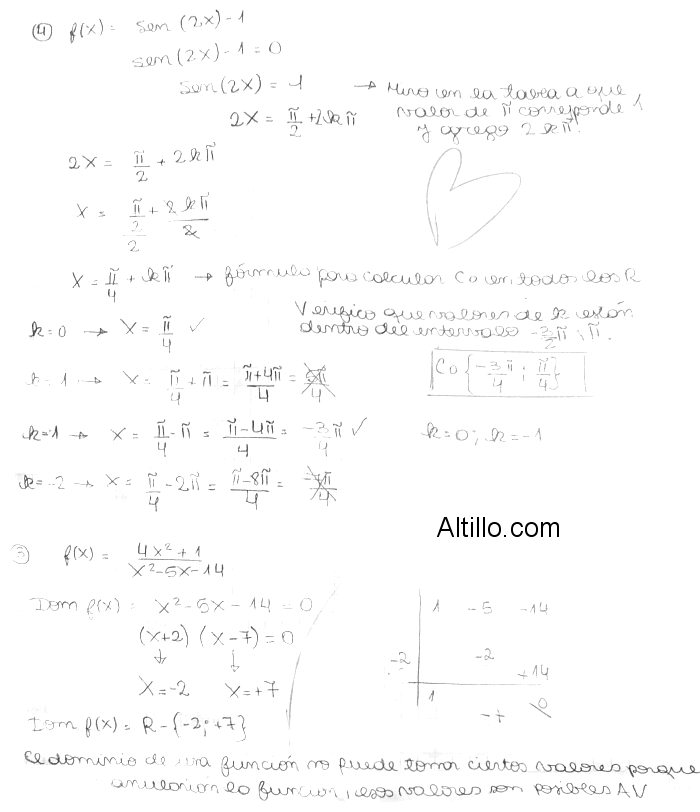 ④ f(x) = sen (2x) - 1
sen (2x) - 1 = 0
sen (2x) = 1 → Miro en la tabla a que
valor de π corresponde 1
y agrego 2kπ.
2x = π/2 + 2kπ
2x = π/2 + 2kπ
x = π/2/2 + 2kπ/2
x = π/4 + kπ → fórmula para calcular Co en todos los R
Verifico que valores de k están
dentro del intervalo -3/2 π ; π.
k=0 → x = π/4 ✓
k=1 → x = π/4 + π = π+4π/4 = 5π/4
Co {-3/4 π ; π/4}
k=-1 → x = π/4 - π = π-4π/4 = -3/4 π ✓
k=0 ; k=-1
k=-2 → x = π/4 - 2π = π-8π/4 = -7π/4
Altillo.com
③ f(x) = 4x²+1 / x²-5x-14
Dom f(x) = x²-5x-14 = 0
(x+2) (x-7) = 0
x=-2 x=+7
Dom f(x) = R - {-2;+7}
1 -5 -14
-2 -2 +14
1 -7 0
El dominio de una función no puede tomar ciertos valores porque
anularían la función, esos valores son posibles AV